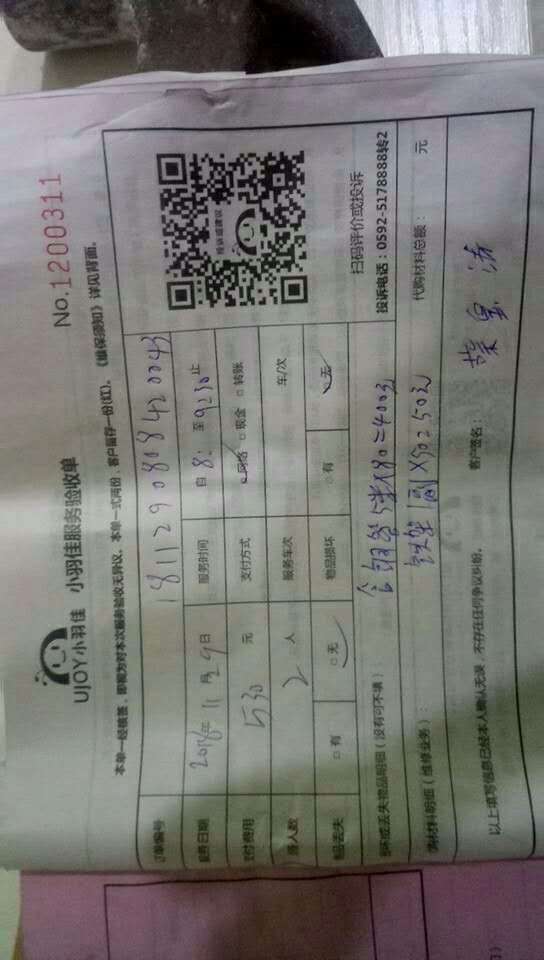 UJOY小羽佳 小羽佳服务验收单
No.1200311
本单一经核签，即视为对本次服务验收无异议。本单一式两份，客户留存一份(红)。《维保须知》详见背面。
订单编号 181129080842 0043
服务日期 2018年 11月29日 服务时间 自 8: 至 9:30 止
支付费用 530 元 支付方式 □网络 □现金 □转账
服务人数 2 人 服务车次 车/次
物品丢失 □有 □无 物品损坏 □有 □无
投诉或建议
扫码评价或投诉
投诉电话：0592-5178888转2
损坏或丢失物品明细（没有可不填）：
5张×80=400元
消耗材料明细（维修业务）： 1副×50=50元 代购材料总额： 元
以上填写信息已经本人确认无误，不存在任何争议纠纷。 客户签名：